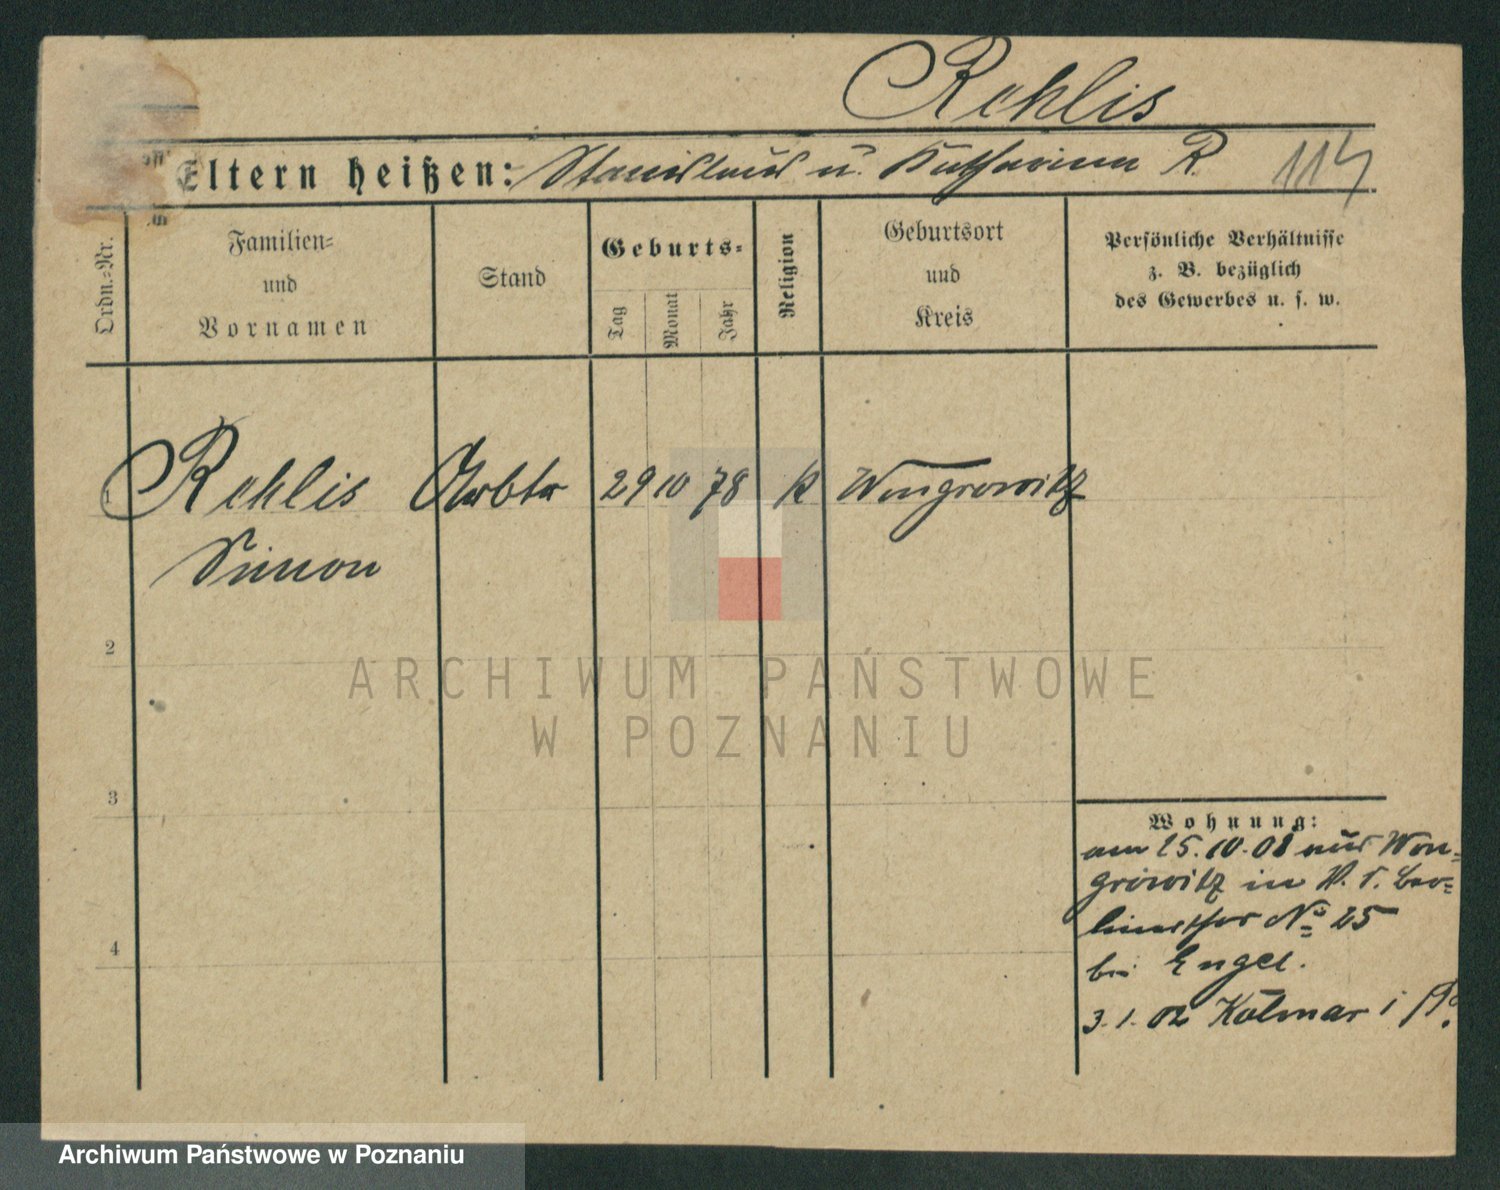 Rehlis
Eltern heißen: Stanislaus u. Katharina R.
114
Ordn.=Nr.
Familien=
und
Vornamen
Stand
Geburts=
Tag
Monat
Jahr
Religion
Geburtsort
und
Kreis
Persönliche Verhältnisse
z. B. bezüglich
des Gewerbes u. s. w.
1 Rehlis Arbtr 29 10 78 k Wongrowitz
Simon
2
3
4
ARCHIWUM PAŃSTWOWE
W POZNANIU
Wohnung:
am 25.10.01 aus Won=
growitz in
No 25
bei Engel.
3.1.02 Kolmar i P.
Archiwum Państwowe w Poznaniu